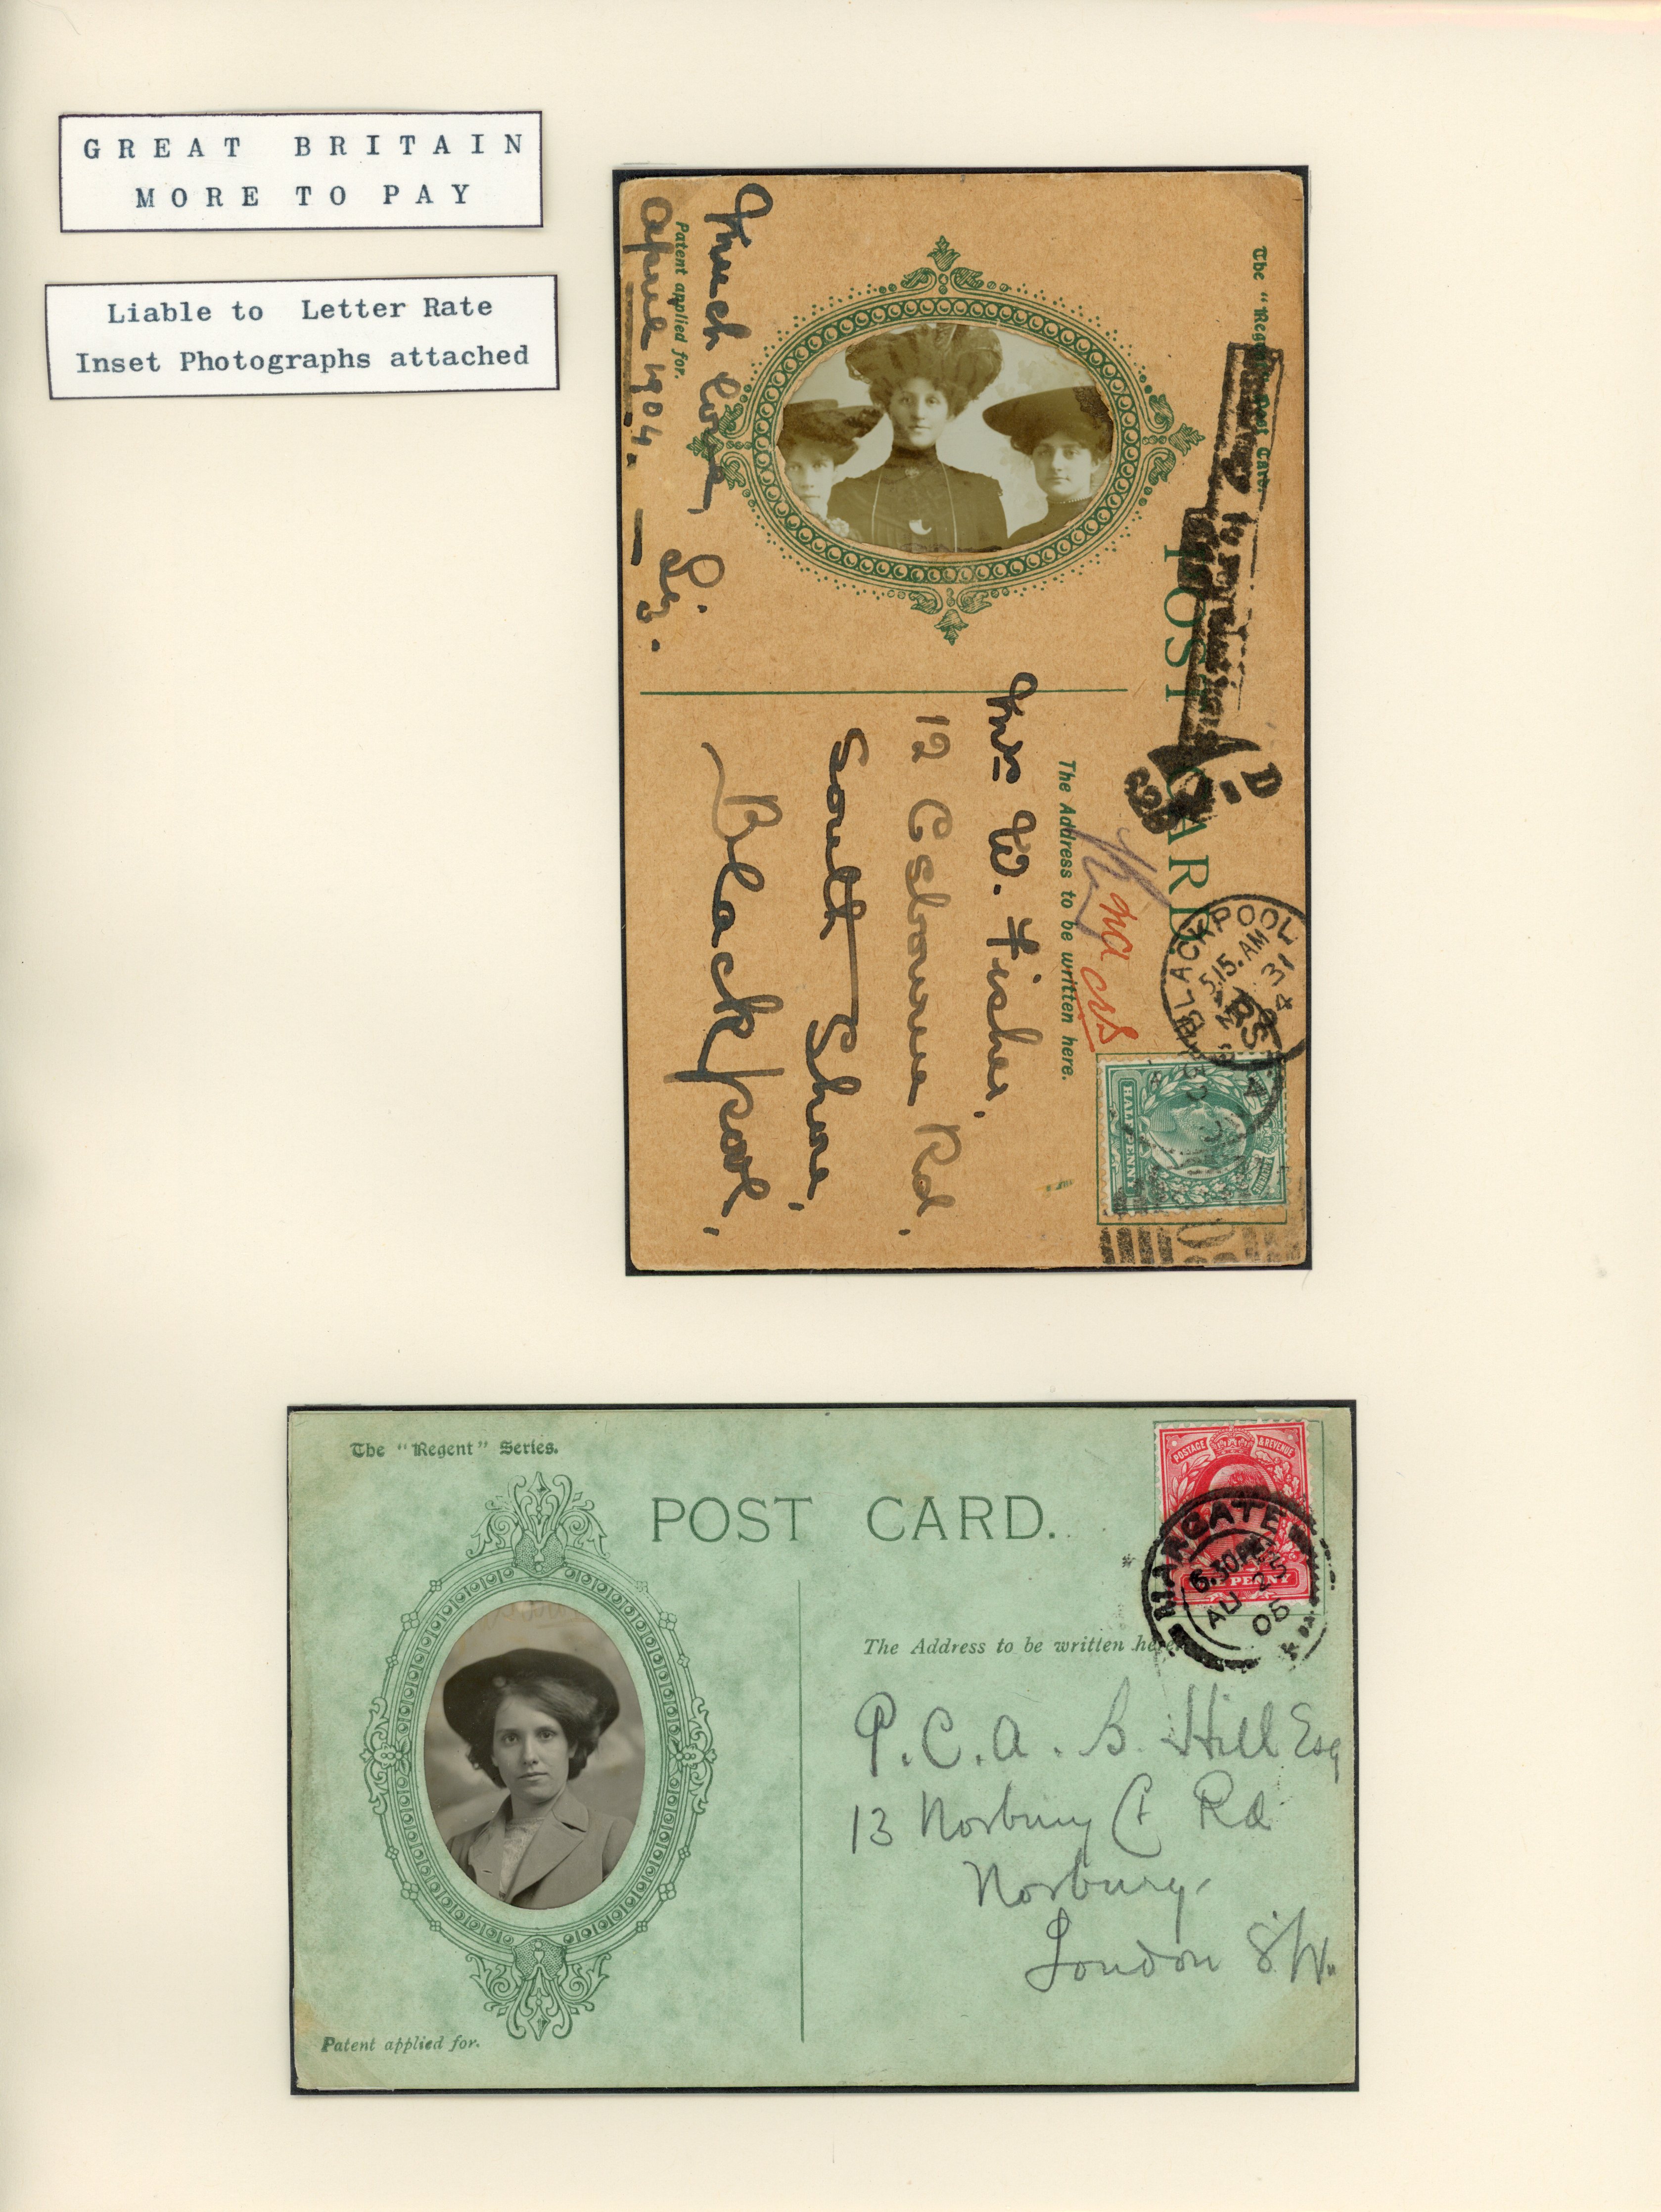 GREAT BRITAIN
MORE TO PAY
Liable to Letter Rate
Inset Photographs attached
The "Regent" Post Card.
POST CARD
The Address to be written here.
Patent applied for.
Much love, Liz.
April 1904.
Mrs W. Fisher,
12 Osbourne Rd,
South Shore,
Blackpool,
Contrary to regulations
D
BLACKPOOL
5.15.AM
31
4
HALFPENNY
The "Regent" Series.
POST CARD.
POSTAGE & REVENUE
PENNY
MARGATE
6.30PM
AU 25
05
The Address to be written here
P.C.A. B. Hill Esq
13 Norbury Ct Rd
Norbury
London S.W.
Patent applied for.